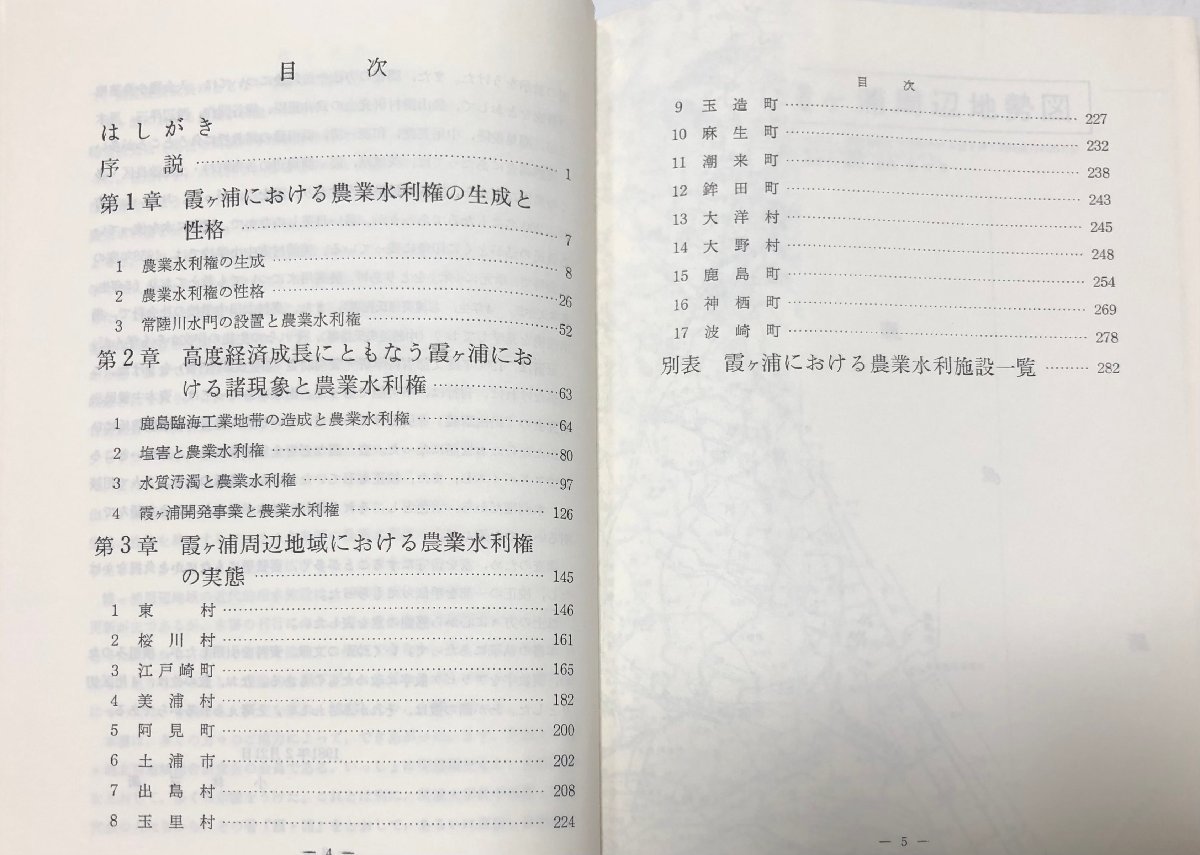 目 次
はしがき
序 説 1
第1章 霞ヶ浦における農業水利権の生成と
性格 7
1 農業水利権の生成 8
2 農業水利権の性格 26
3 常陸川水門の設置と農業水利権 52
第2章 高度経済成長にともなう霞ヶ浦にお
ける諸現象と農業水利権 63
1 鹿島臨海工業地帯の造成と農業水利権 64
2 塩害と農業水利権 80
3 水質汚濁と農業水利権 97
4 霞ヶ浦開発事業と農業水利権 126
第3章 霞ヶ浦周辺地域における農業水利権
の実態 145
1 東 村 146
2 桜川村 161
3 江戸崎町 165
4 美浦村 182
5 阿見町 200
6 土浦市 202
7 出島村 208
8 玉里村 224
— 4 —
目 次
9 玉造町 227
10 麻生町 232
11 潮来町 238
12 鉾田町 243
13 大洋村 245
14 大野村 248
15 鹿島町 254
16 神栖町 269
17 波崎町 278
別表 霞ヶ浦における農業水利施設一覧 282
— 5 —